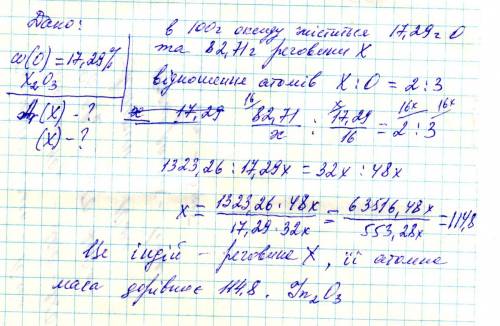 Дано:
ω(O) = 17,29%
X₂O₃
Ar(X) - ?
(X) - ?
в 100г оксиду міститься 17,29г О
та 82,71г речовини X
відношення атомів X : O = 2 : 3
x 17,29
16/ 82,71/x : x/ 17,29/16 = 16x/ 2 : 16x/ 3
1323,26 : 17,29x = 32x : 48x
x = 1323,26 · 48x / 17,29 · 32x = 63516,48x / 553,28x = 114,8
Це індій - речовина X, її атомна
маса дорівнює 114,8. In₂O₃